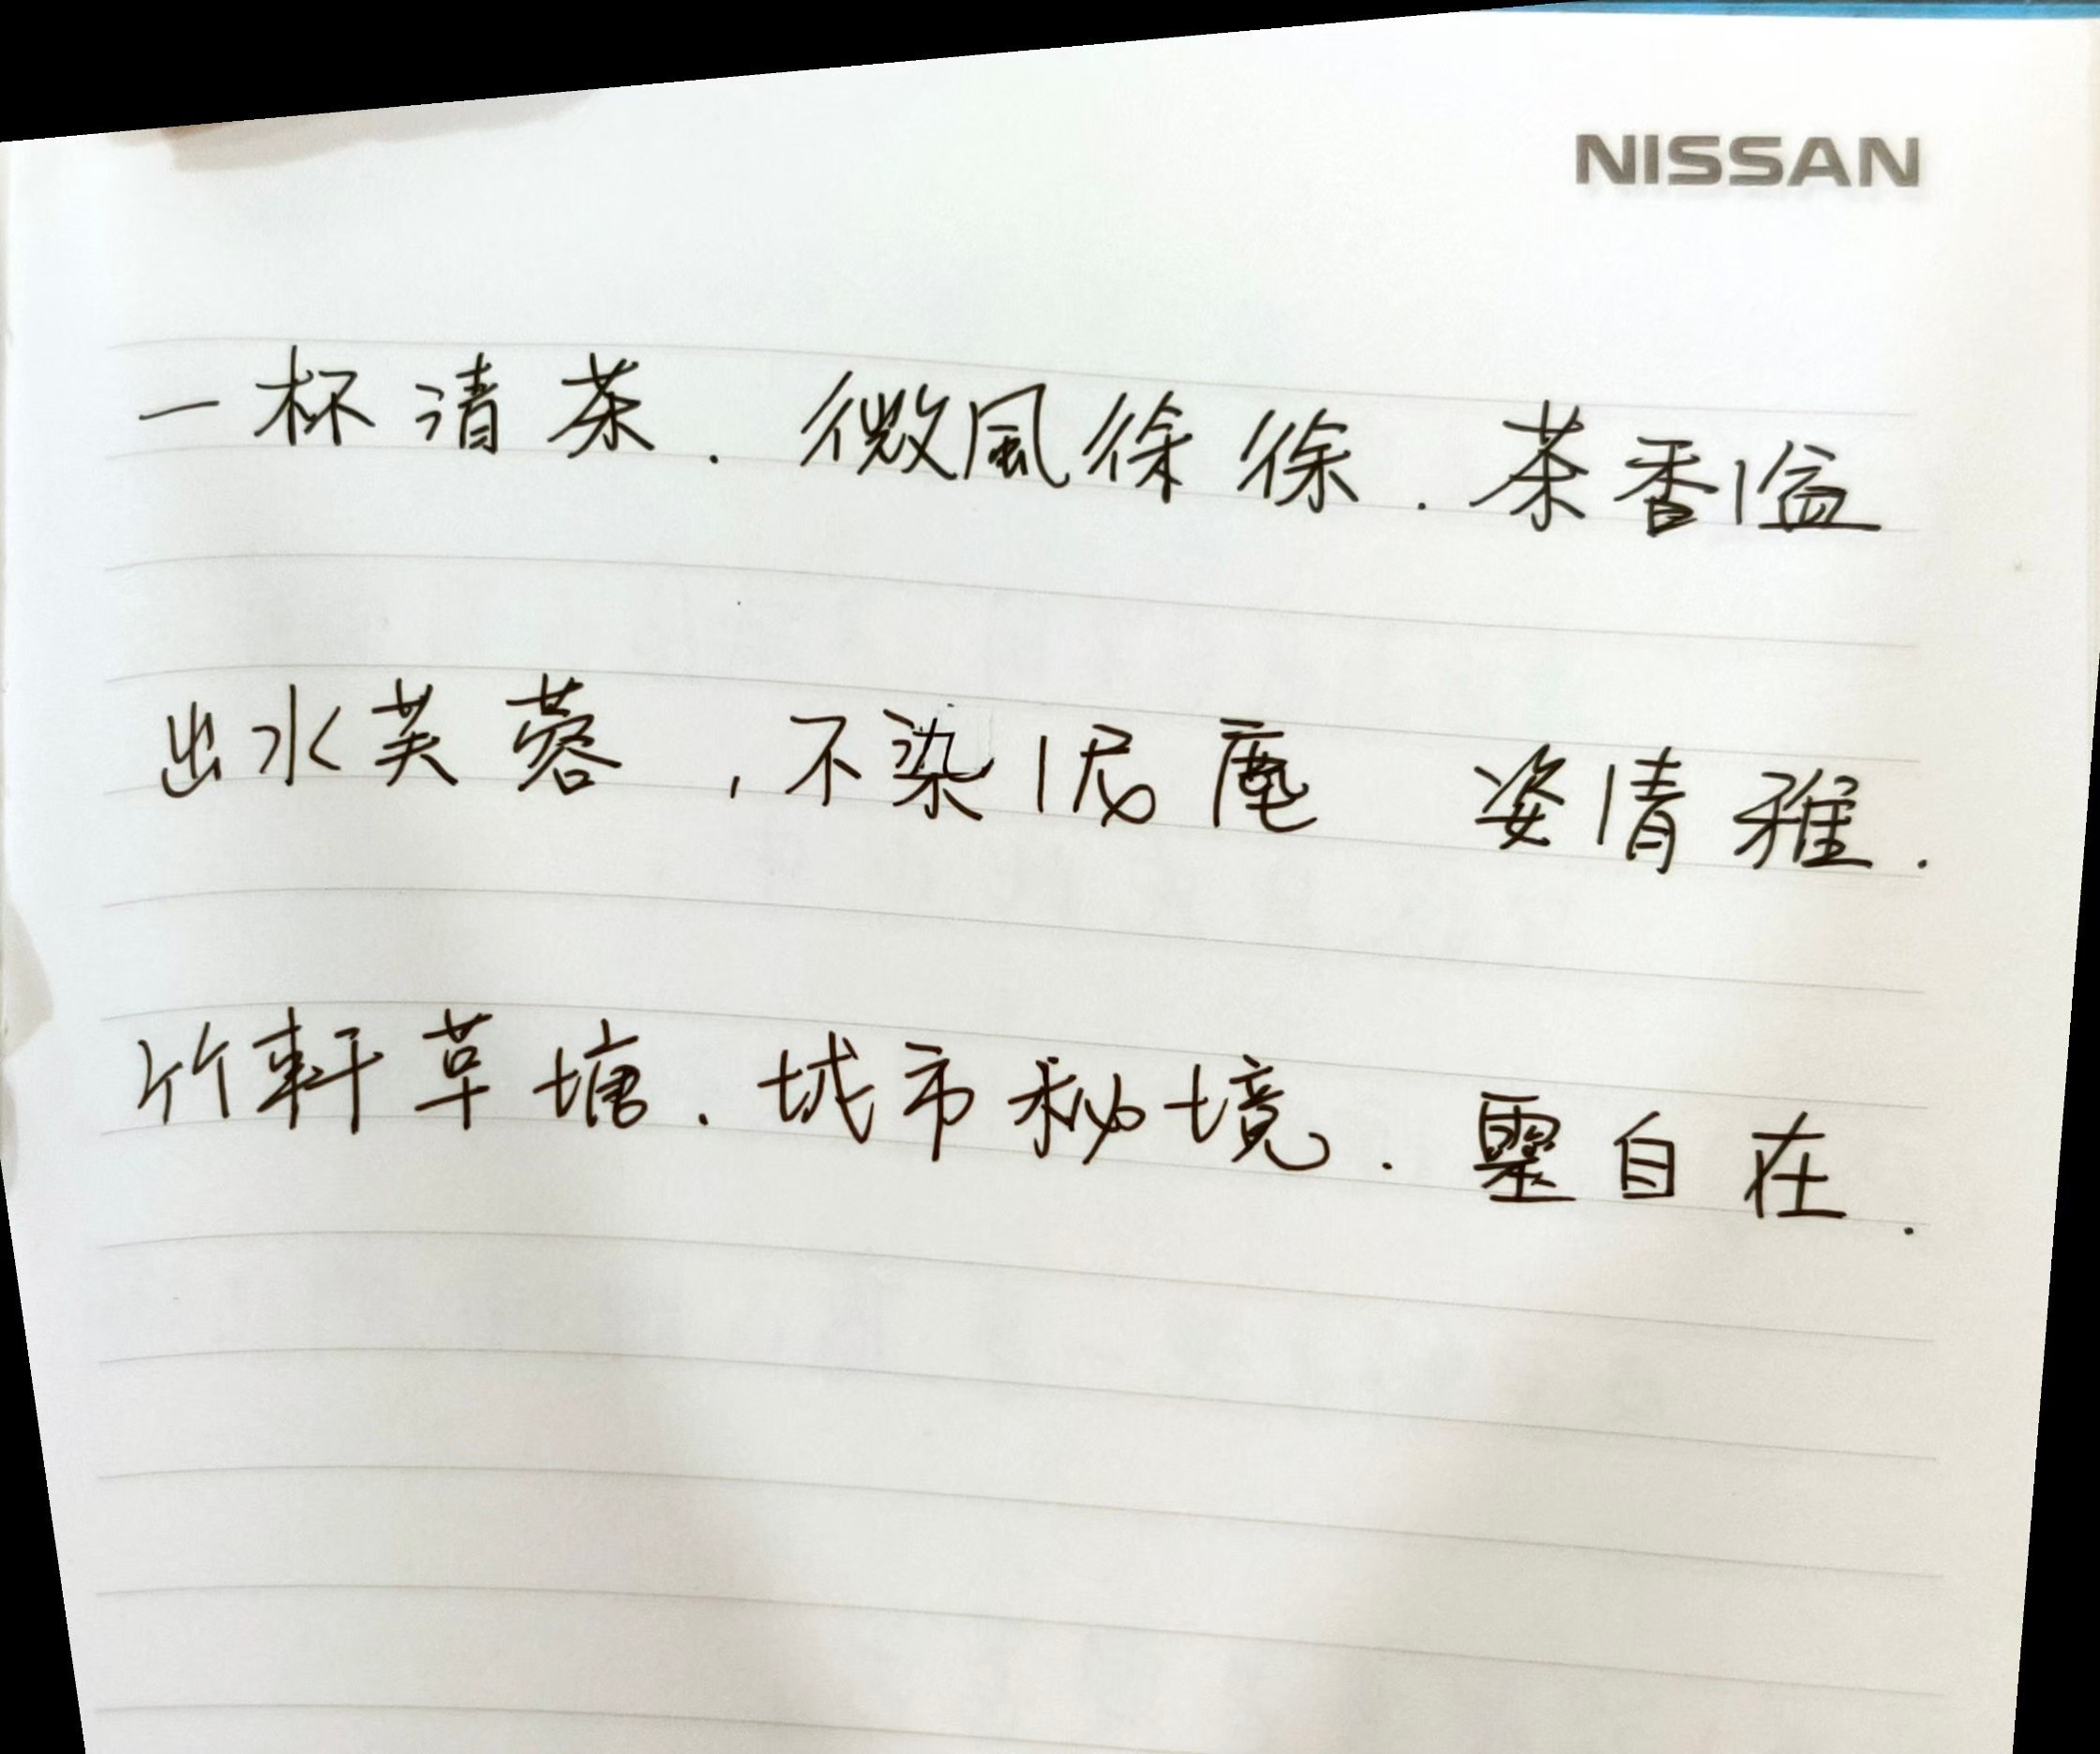 NISSAN
一杯清茶.微風徐徐.茶香溢
出水芙蓉,不染泥塵 姿清雅.
竹軒草塘.城市秘境.靈自在.